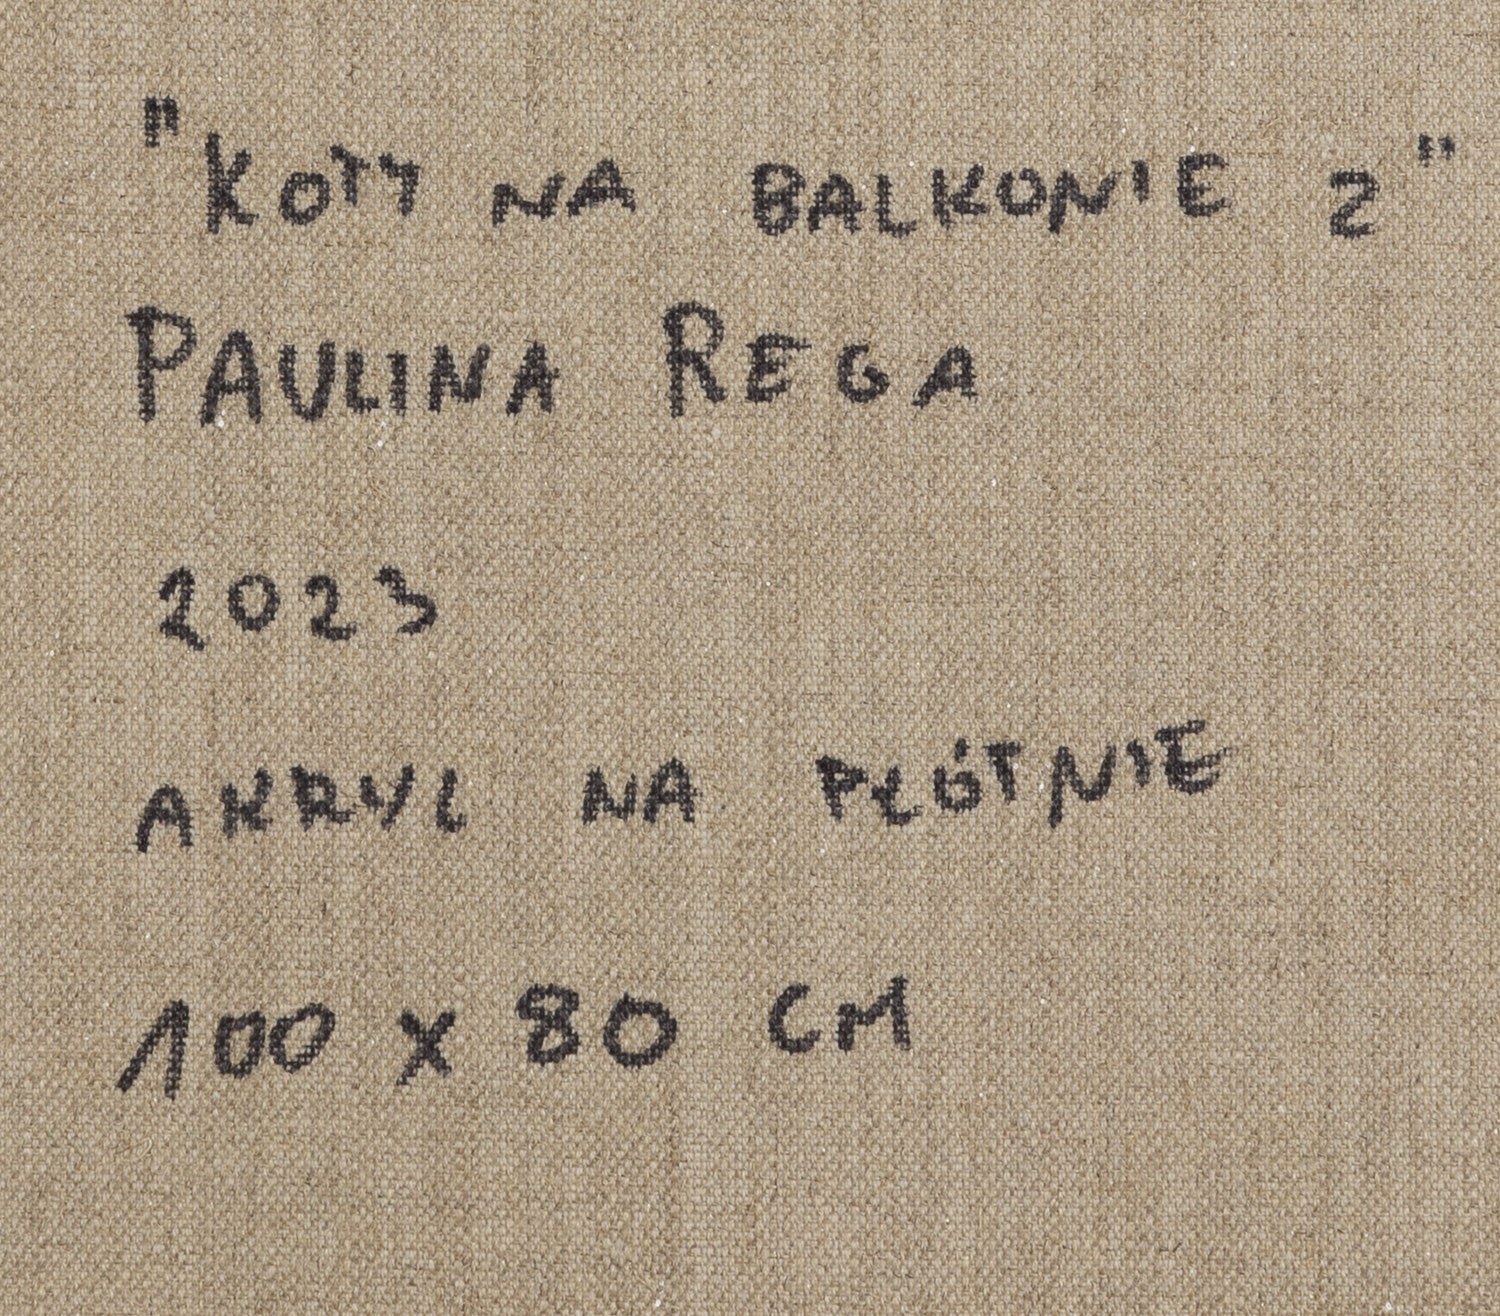 "KOTY NA BALKONIE 2"
PAULINA REGA
2023
AKRYL NA PŁÓTNIE
100 x 80 CM